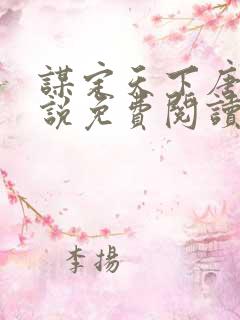 謀定天下唐
說免費閱讀
李揚